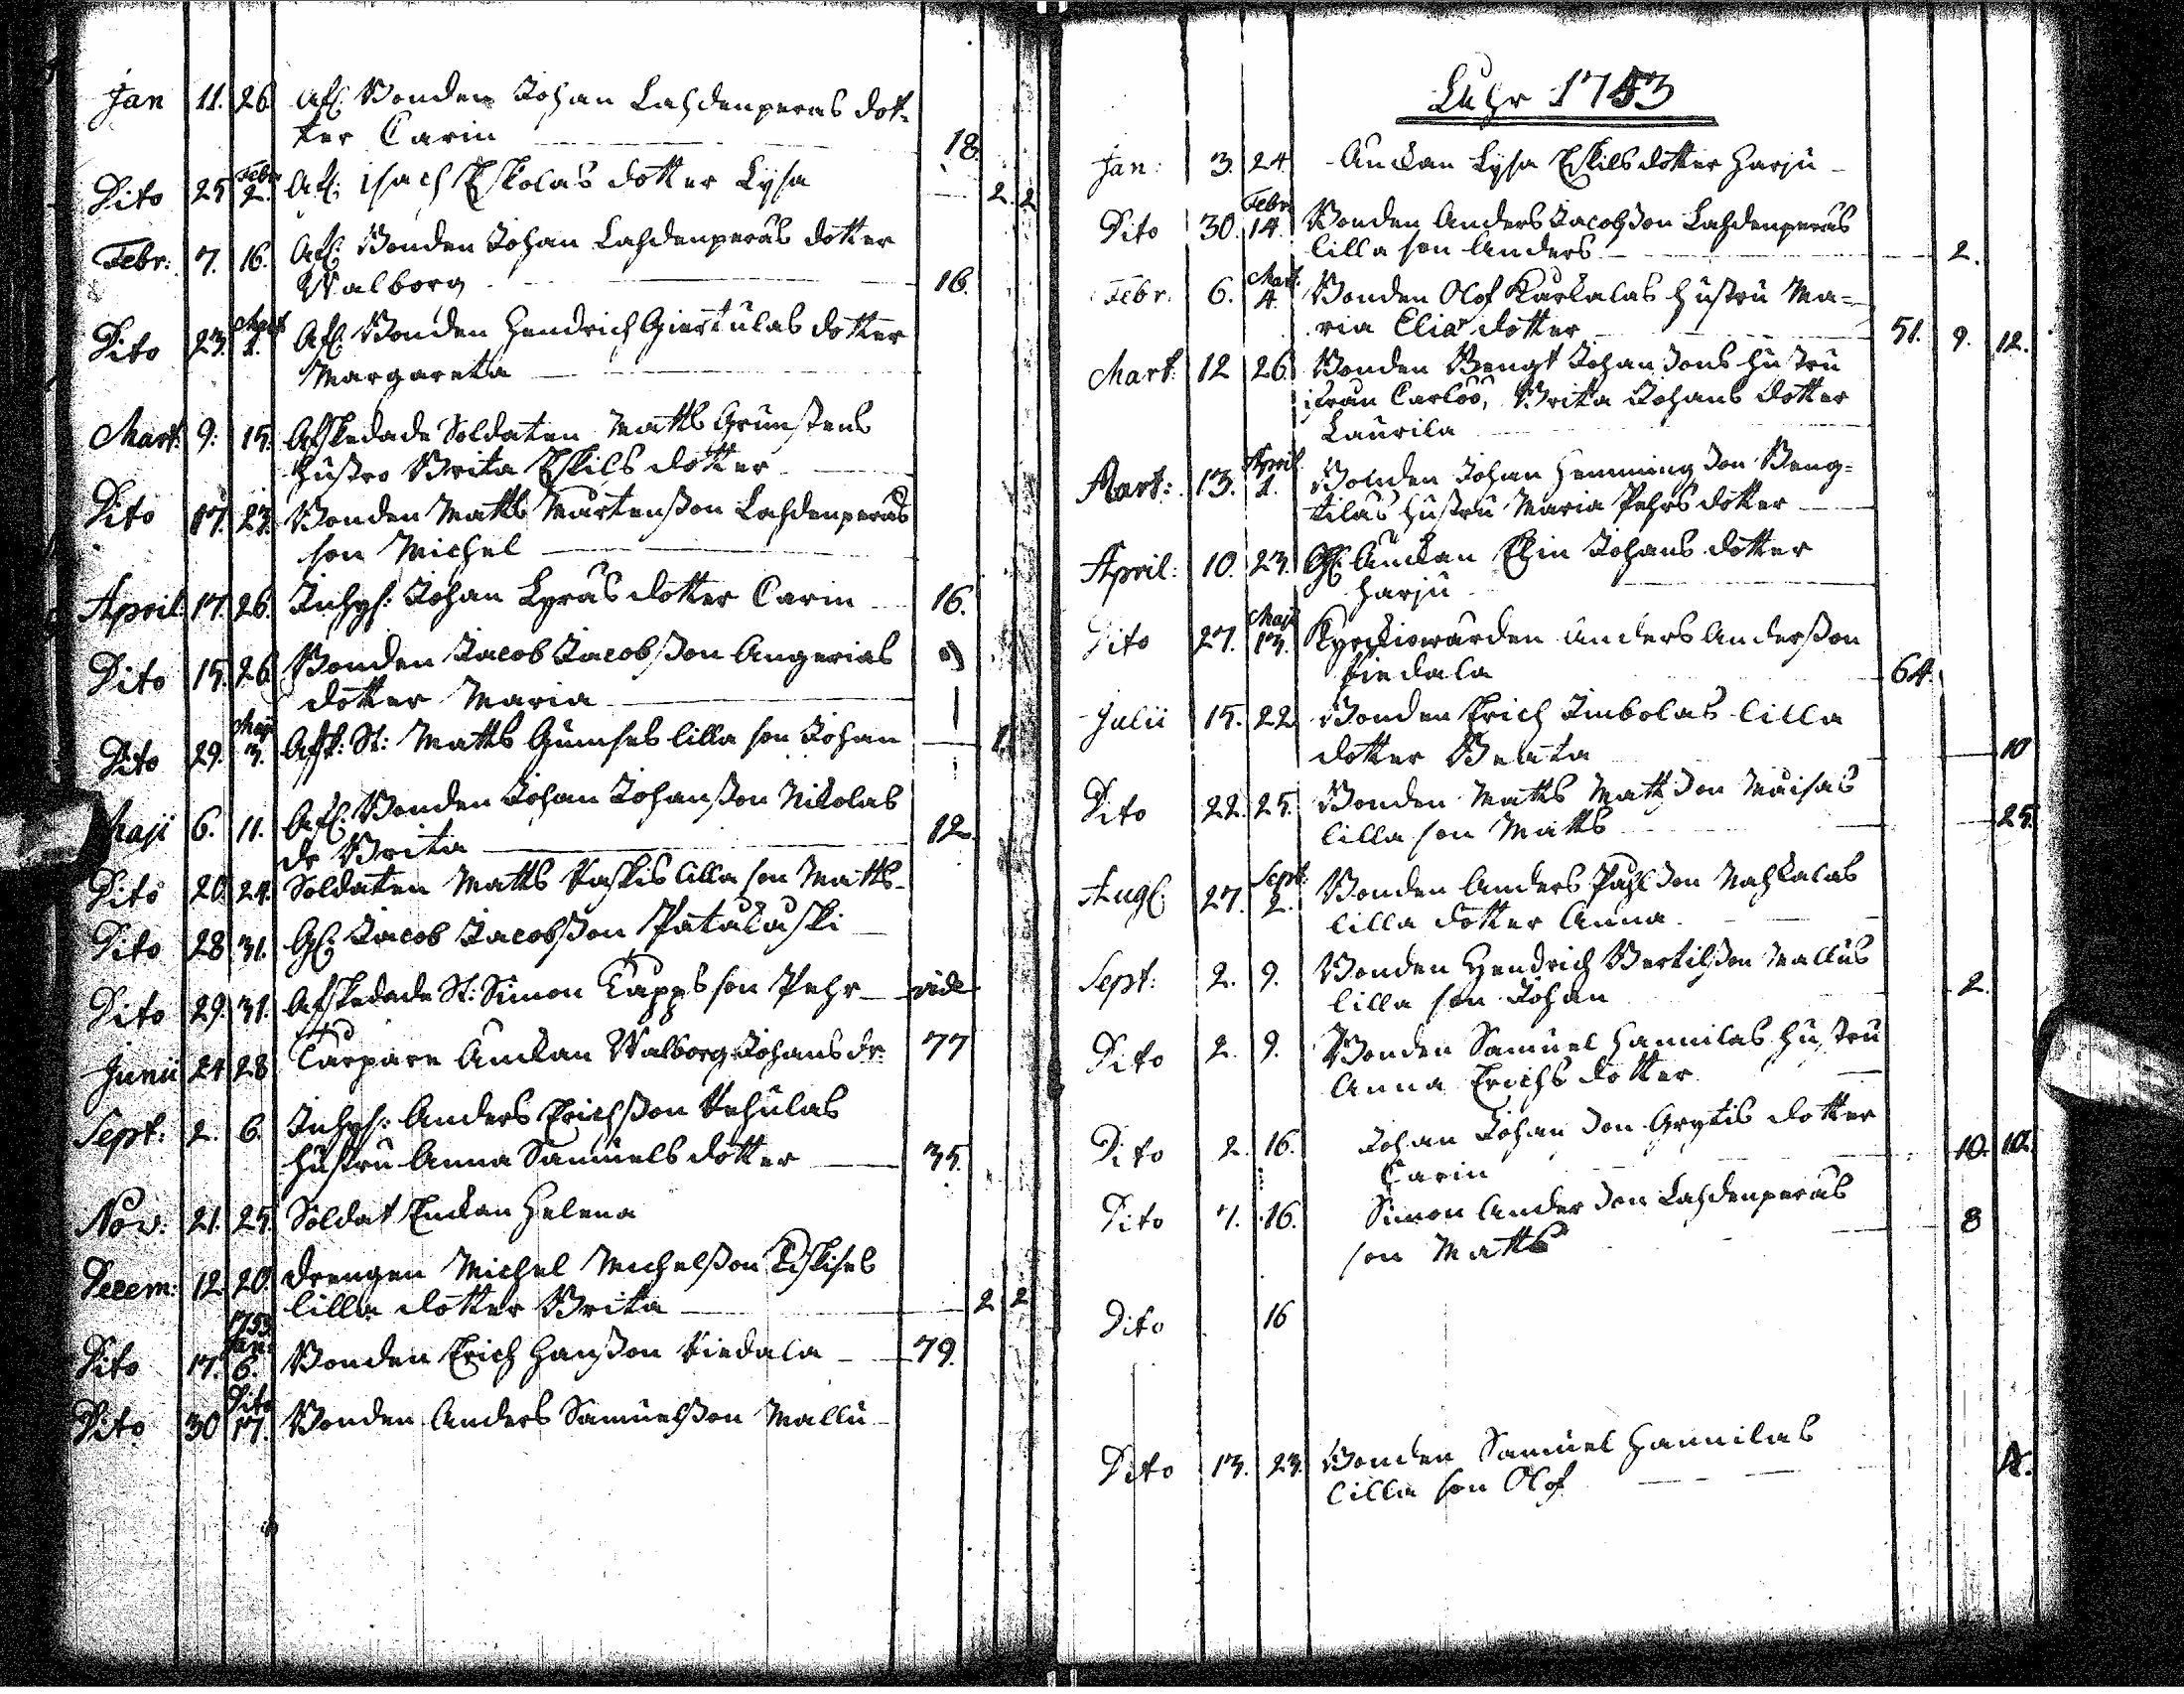 Jan 11. 26. Afl: Bonden Johan Lahdenperas dot-
ter Carin 18.
Dito 25 Febr 2. Afl: Isach Eskolas dotter Lysa 2. 2
Febr: 7. 16. Afl: Bonden Johan Lahdenperäs dotter
Walborg 16.
Dito 23. Mart 1. Afl: Bonden Hendrich Giertulas dotter
Margareta
Mart: 9. 15. Afskedade Soldaten Matts Grunstens
hustro Brita Eskils dotter
Dito 17. 23. Bonden Matts Mårtensson Lahdenperäs
son Michel
April 17. 26. Inhys: Johan Lyräs dotter Carin 16.
Dito 15. 26 Bonden Jacob Jacobsson Angerias
dotter Maria
Dito 29. Maji 3. Afsk: St: Matts Gumses lilla son Johan
Maji 6. 11. Afl: Bonden Johan Johansson Nikolas
dr Brita 12.
Dito 20. 24. Soldaten Matts Kaskis lilla son Matts
Dito 28 31. Gl: Jacob Jacobsson
Dito 29. 31. Afskedade St: Simon Capps son Pehr
Junii 24 28 Enckan Walborg Johans dr. 77
Sept: 2. 6. Inhys: Anders Erichsson Kehulas
hustru Anna Samuels dotter 35.
Nov: 21. 25. Soldat Enckan Helena
Decem: 12 20. Drengen Michel Michelsson Kiskises
lilla dotter Brita 2 2
Dito 17. 1753 Jan: 6. Bonden Erich Hansson Kiedala 79.
Dito 30 Dito 17. Bonden Anders Samuelsson Mallu
Åhr 1753
Jan: 3. 24 Enckan Lysa Eskilsdotter Harju
Dito 30. Febr 14. Bonden Anders Jacobsson Lahdenperäs
lilla son Anders 2.
Febr. 6. Mart. 4. Bonden Olof Karkalas hustru Ma=
ria Elias dotter 51. 9. 12.
Mart: 12 26 Bonden Bengt Johanssons hustru
ifrån Carloo, Brita Johans dotter
Laurila
Mart: 13. April 1. Bonden Johan Henningsson Beng=
tilas hustru Maria Pehrs dotter
April: 10. 23. Gl: Enckan Elin Johans dotter
Harju
Dito 27. Maji 13. Kyrckiowärden Anders Andersson
Kiedala 64.
Julii 15. 22 Bonden Erich Imbolas lilla
dotter Beata 10
Dito 22. 25. Bonden Matts Mattsson Muisas
lilla son Matts 25.
Augl: 27. Sept: 2. Bonden Anders Påhlsson Nahkalas
lilla dotter Anna
Sept: 2. 9. Bonden Hendrich Bertilsson Mallus
lilla son Johan 2.
Dito 2. 9. Bonden Samuel Hannilas hustru
Anna Erichs dotter
Dito 2. 16. Johan Johansson Grytis dotter
Carin 10. 10.
Dito 7. 16. Simon Andersson Lahdenperäs
son Matts 8
Dito 16
Dito 13. 23. Bonden Samuel Hannilas
lilla son Olof